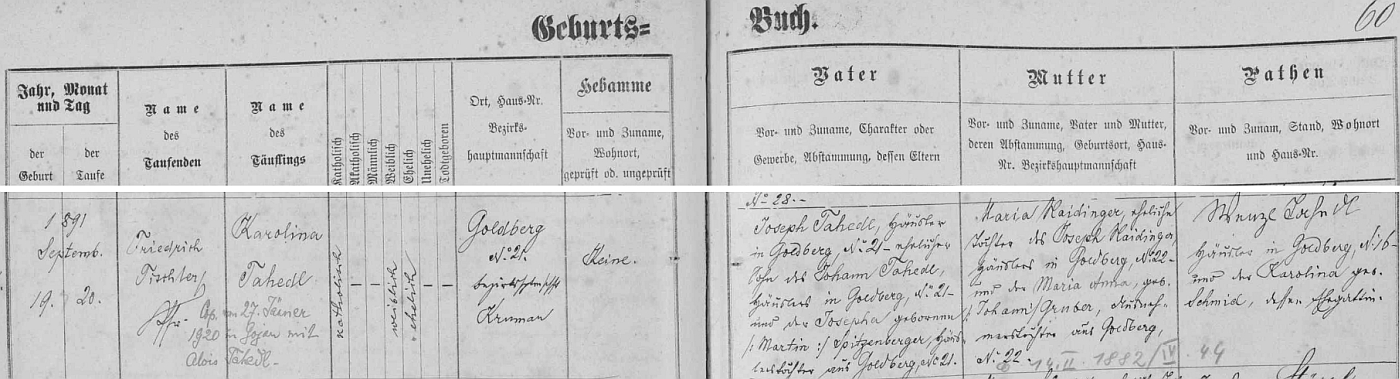 Geburts=
Buch.
60
Jahr, Monat
und Tag
der
Geburt
der
Taufe
Name
des
Taufenden
Name
des
Täuflings
Katholisch
Akatholisch
Männlich
Weiblich
Ehelich
Unehelich
Todtgeboren
Ort, Haus-Nr.
Bezirks-
hauptmannschaft
Hebamme
Vor- und Zuname,
Wohnort,
geprüft od. ungeprüft
Vater
Vor- und Zuname, Charakter oder
Gewerbe, Abstammung, dessen Eltern
Mutter
Vor- und Zuname, Vater und Mutter,
deren Abstammung, Geburtsort, Haus-
Nr. Bezirkshauptmannschaft
Pathen
Vor- und Zunam, Stand, Wohnort
und Haus-Nr.
1891
Septemb.
19. 20.
Friedrich
Karolina
Tahedl
27. Jänner
1920 in Gojau mit
Alois Tahedl.
katholisch
– –
weiblich
ehelich
– –
Goldberg
N. 21.
Krumau
Keine.
No 28.
Joseph Tahedl, Häusler
in Goldberg, No 21 ehelicher
Sohn des Johann Tahedl,
Häuslers in Goldberg, No 21
und der Josepha geborenen
/: Martin :/ Spitzenberger, Häus-
lerstochter aus Goldberg, No 21.
Maria Raidinger, eheliche
Tochter des Joseph Raidinger,
Häuslers in Goldberg, No 22
und der Maria Anna, geb.
/: Johann :/ Gruber,
aus Goldberg,
No 22. 14. II. 1882/IV. 44
Wenzl
Häusler in Goldberg, No 16
und der Karolina geb.
Schmid, dessen Ehegattin.